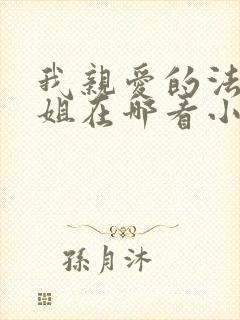 我親愛的法
姐在哪看小
孫月沐